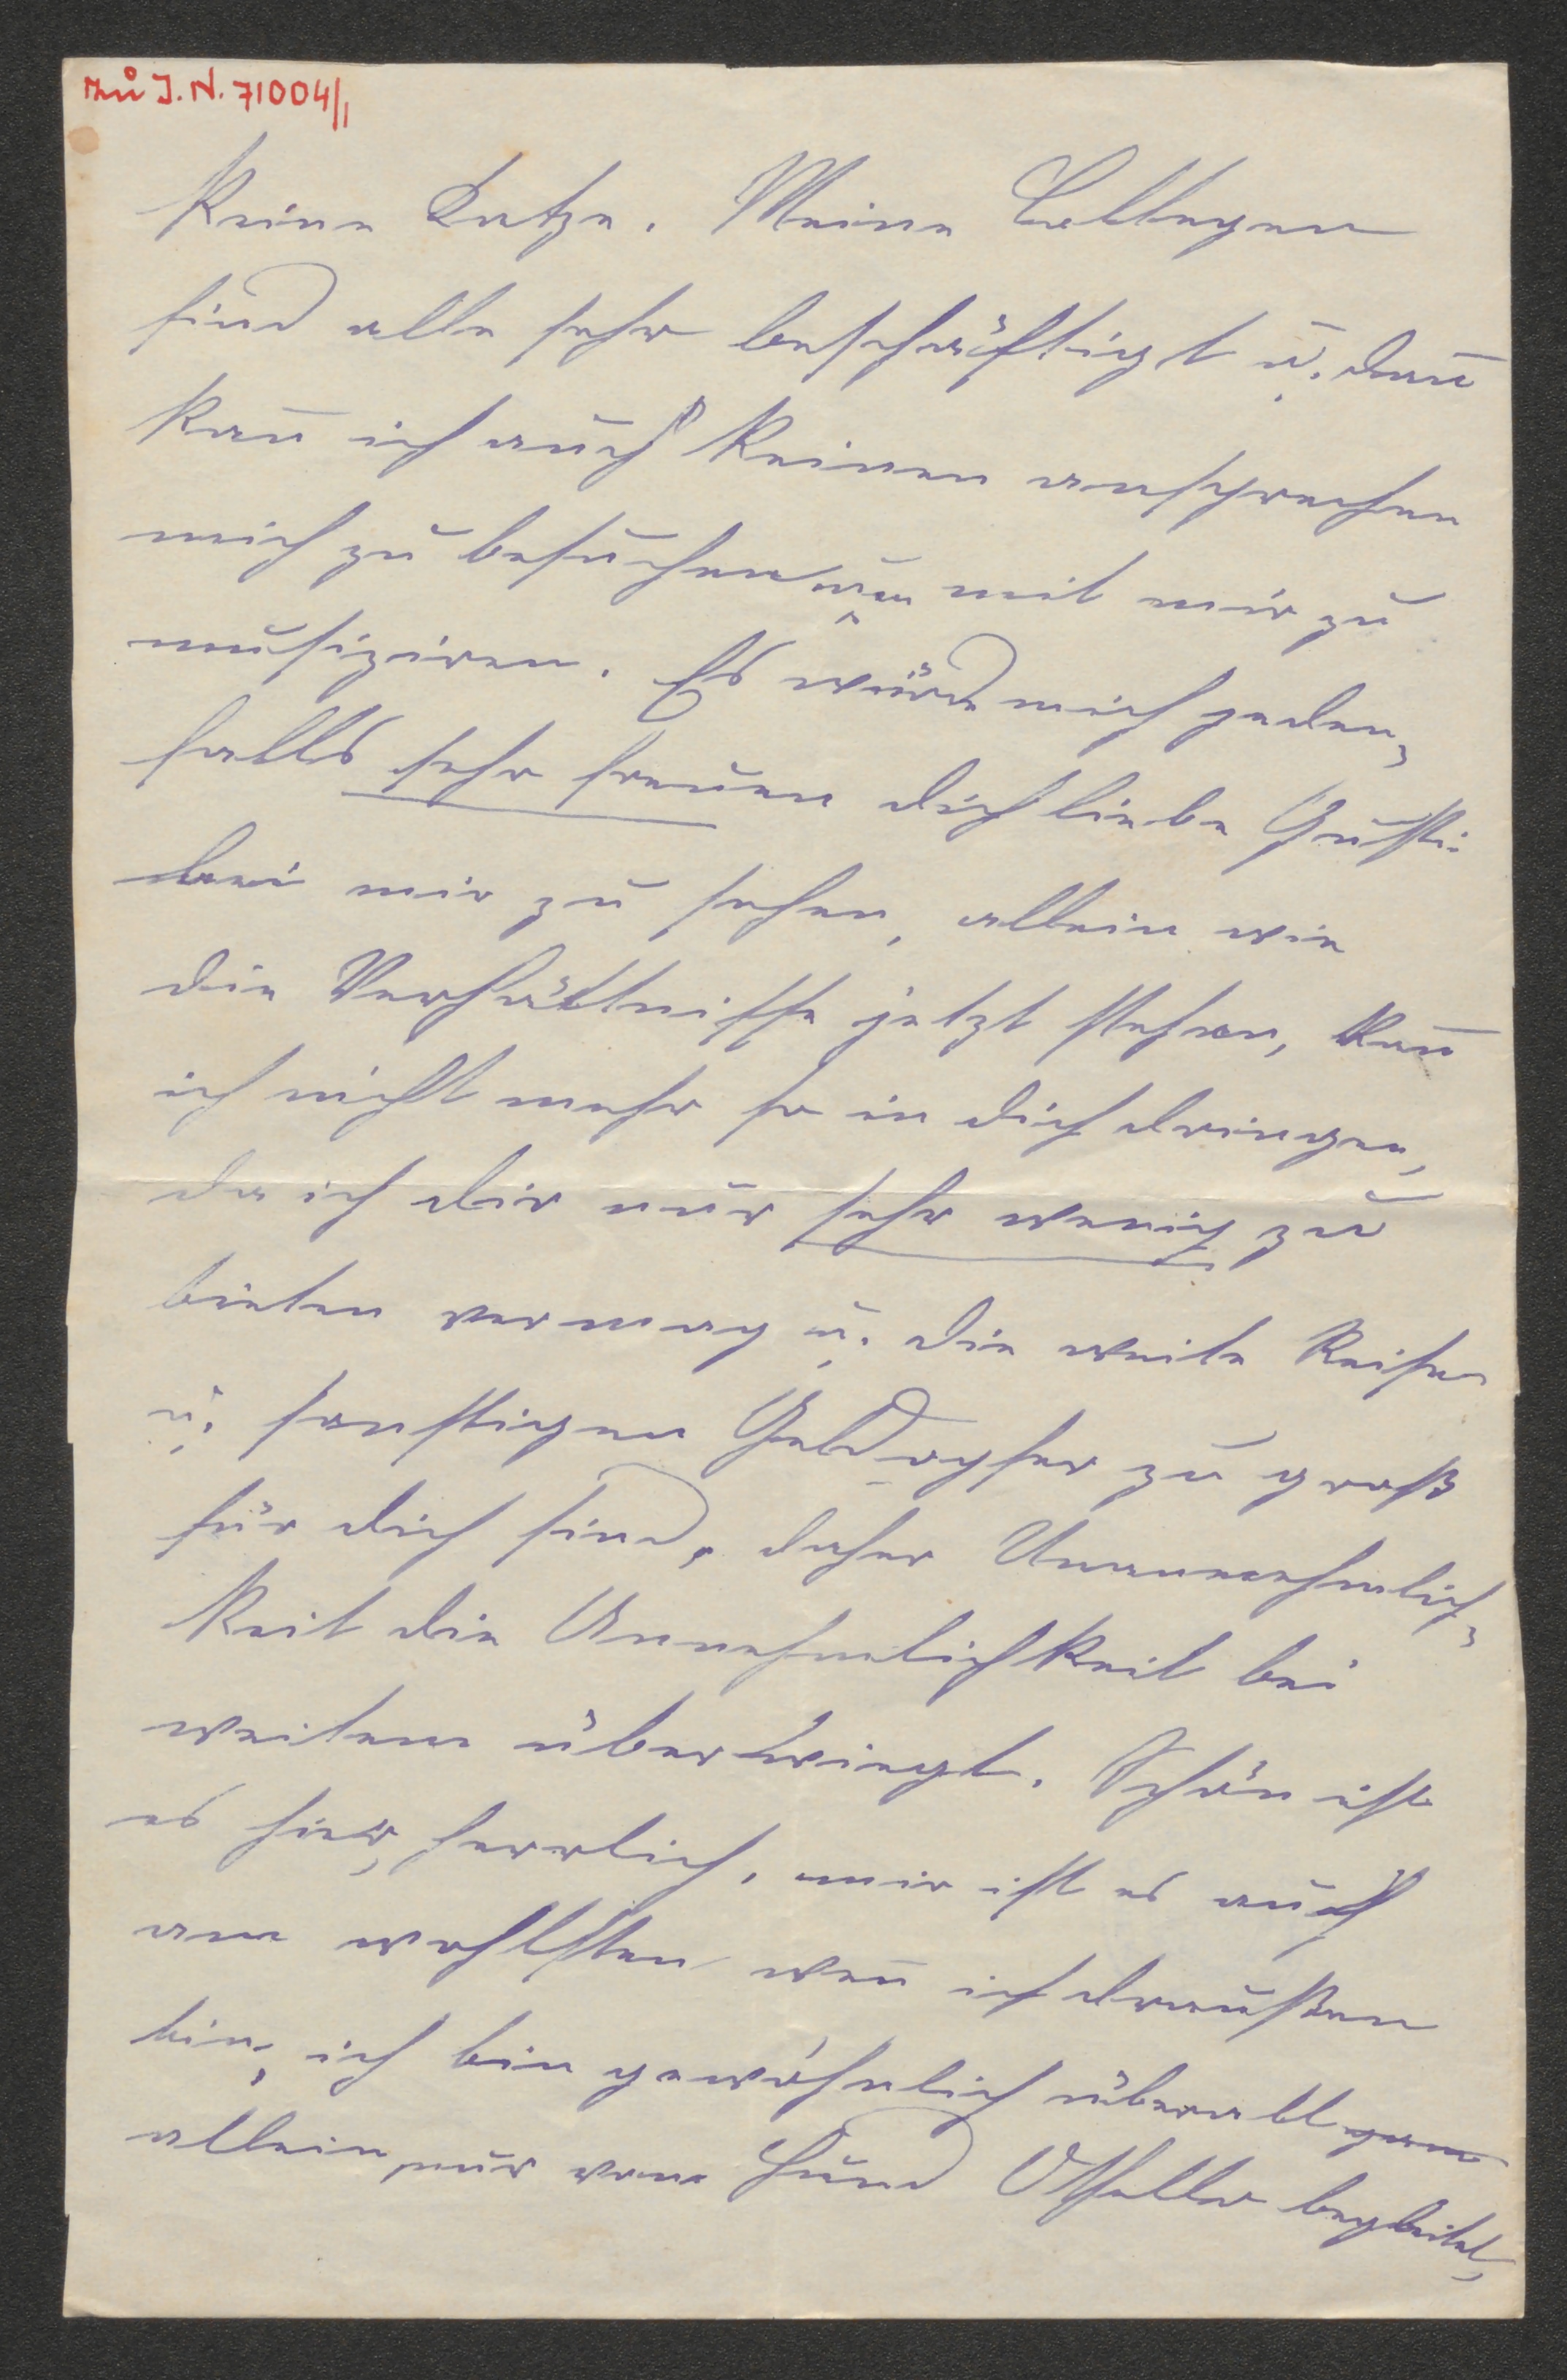 zu I.N. 71004/1
keine Katze. Meine Collegen
sind alle sehr beschäftigt u. dann
kan̅ ich auch keinen ansprechen
mich zu besuchen um mit mir zu
musiziren. Es würde mich jeden-
falls sehr freuen dich liebe Gusti
bei mir zu sehen, allein wie
die Verhältnisse jetzt stehen, kan̅
ich nicht mehr so in dich dringen,
da ich dir nur sehr wenig zu
bieten vermag u. die weite Reise
u. sonstigen Geldopfer zu groß
für dich sind, daher Unannehmlich-
keit die Annehmlichkeit bei
weitem überwiegt. Schön ist
es hier, herrlich, mir ist es auch
am wohlsten wen̅ ich draußen
bin; ich bin gewöhnlich überall
allein, nur vom Hund Othello begleitet,